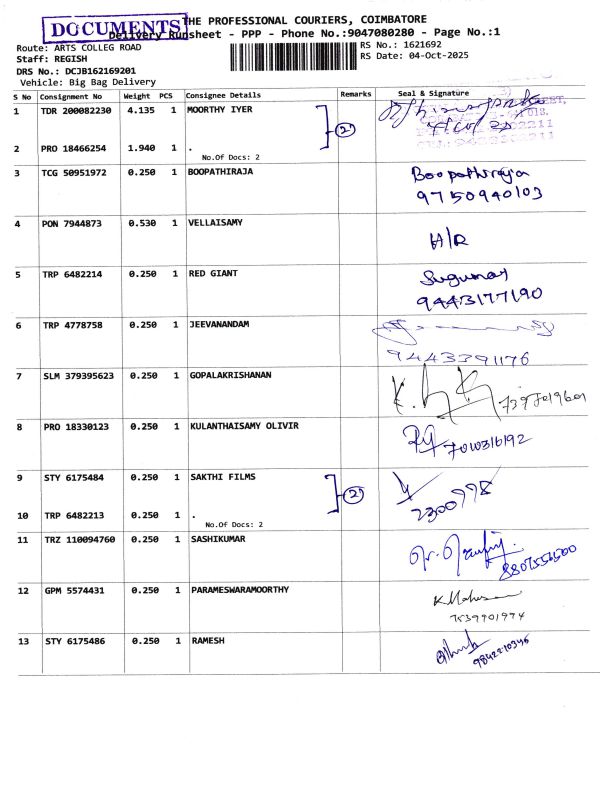 DOCUMENTS
THE PROFESSIONAL COURIERS, COIMBATORE
Delivery Runsheet - PPP - Phone No.:9047080280 - Page No.:1
Route: ARTS COLLEG ROAD
RS No.: 1621692
Staff: REGISH
RS Date: 04-Oct-2025
DRS No.: DCJB162169201
Vehicle: Big Bag Delivery
S No Consignment No Weight PCS Consignee Details Remarks Seal & Signature
1 TDR 200082230 4.135 1 MOORTHY IYER
2
2 PRO 18466254 1.940 1 .
No.Of Docs: 2
3 TCG 50951972 0.250 1 BOOPATHIRAJA Boopathiraja
9750940103
4 PON 7944873 0.530 1 VELLAISAMY H/R
5 TRP 6482214 0.250 1 RED GIANT
9443177190
6 TRP 4778758 0.250 1 JEEVANANDAM
9443391176
7 SLM 379395623 0.250 1 GOPALAKRISHANAN
8 PRO 18330123 0.250 1 KULANTHAISAMY OLIVIR
9 STY 6175484 0.250 1 SAKTHI FILMS
2 2300998
10 TRP 6482213 0.250 1 .
No.Of Docs: 2
11 TRZ 110094760 0.250 1 SASHIKUMAR
12 GPM 5574431 0.250 1 PARAMESWARAMOORTHY
7539901974
13 STY 6175486 0.250 1 RAMESH